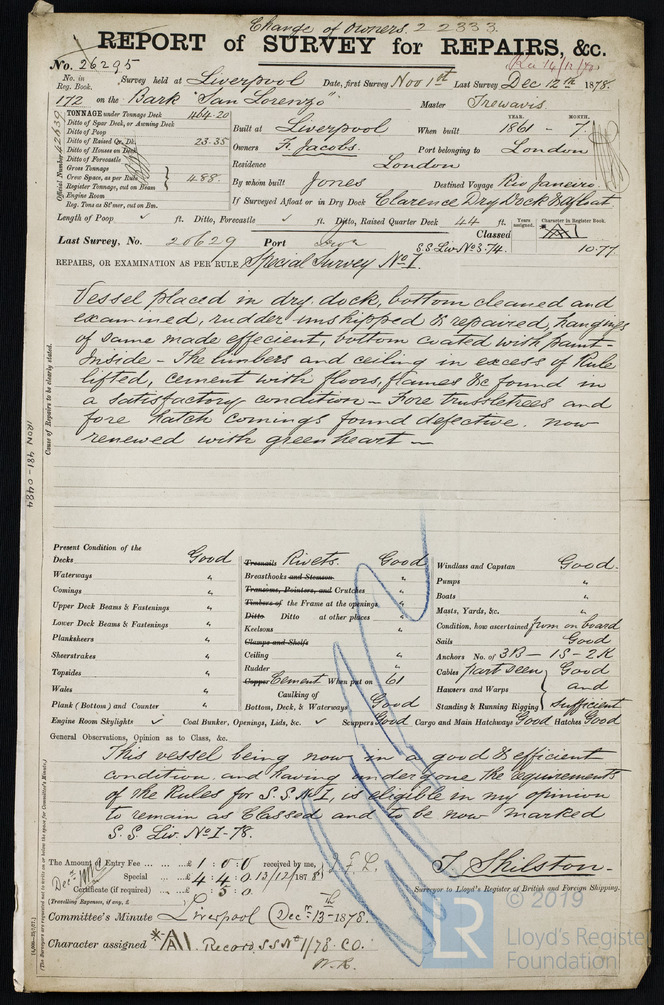 Change of Owners. 22333.
REPORT of SURVEY for REPAIRS, &c.
No. 26295
No. in Reg. Book. Survey held at Liverpool Date, first Survey Nov 1st Last Survey Dec 12th 1878.
172 on the Bark "San Lorenzo" Master Trewavis
TONNAGE under Tonnage Deck 464.20
Ditto of Spar Deck, or Awning Deck
Ditto of Poop
Ditto of Raised Qr. Dk. 23.35
Ditto of Houses on Deck
Ditto of Forecastle
Gross Tonnage
Crew Space, as per Rule 488
Register Tonnage, cut on Beam
Engine Room
Reg. Tons as St'mer, cut on Bm.
Official Number 42639
Built at Liverpool When built YEAR. 1861 - MONTH. 7.
Owners F. Jacobs. Port belonging to London
Residence London
By whom built Jones Destined Voyage Rio Janeiro.
If Surveyed Afloat or in Dry Dock Clarence Dry Dock & Afloat
Length of Poop ft. Ditto, Forecastle ft. Ditto, Raised Quarter Deck 44 ft.
Years assigned. Character in Register Book.
Last Survey, No. 20629 Port Classed A1
S.S. Liv No 3.74. 10.77
REPAIRS, OR EXAMINATION AS PER RULE Special Survey No 1.
Vessel placed in dry dock, bottom cleaned and
examined, rudder unshipped & repaired, hangings
of same made effecient, bottom coated with paint -
Inside - The limbers and ceiling in excess of Rule
lifted, cement with floors, frames &c found in
a satisfactory condition - Fore trussletrees and
fore hatch comings found defective. now
renewed with greenheart -
Cause of Repairs to be clearly stated.
IRON 481-0484
Present Condition of the
Decks Good
Waterways "
Comings "
Upper Deck Beams & Fastenings "
Lower Deck Beams & Fastenings "
Planksheers "
Sheerstrakes "
Topsides "
Wales "
Plank (Bottom) and Counter "
Treenails Rivets. Good
Breasthooks and Stemson "
Transoms, Pointers, and Crutches "
Timbers of the Frame at the openings "
Ditto Ditto at other places "
Keelsons "
Clamps and Shelfs
Ceiling "
Rudder "
Copper Cement When put on 61
Caulking of
Bottom, Deck, & Waterways Good
Windlass and Capstan Good.
Pumps "
Boats "
Masts, Yards, &c. "
Condition, how ascertained from on board
Sails Good
Anchors No. of 3B - 1S - 2K
Cables part seen Good
Hawsers and Warps and
Standing & Running Rigging sufficient
Engine Room Skylights Coal Bunker, Openings, Lids, &c. Scuppers Good Cargo and Main Hatchways Good Hatches Good
General Observations, Opinion as to Class, &c.
This vessel being now in a good & efficient
condition and having undergone the requirements
of the Rules for S.S. No 1, is eligible in my opinion
to remain as Classed and to be now marked
S.S. Liv. No 1-78.
The Amount of Entry Fee ... £ 1 : 0 : 0 received by me,
Special ... £ 4 : 4 : 0 13/12/1878
Certificate (if required) .. £ : 5 : 0
(Travelling Expenses, if any, £ )
T. Shilston.
Surveyor to Lloyd's Register of British and Foreign Shipping.
Committee's Minute Liverpool Decr 13th 1878.
Character assigned *A1. Record. SS No 1/78 CO.
© 2019
LR Lloyd's Register
Foundation